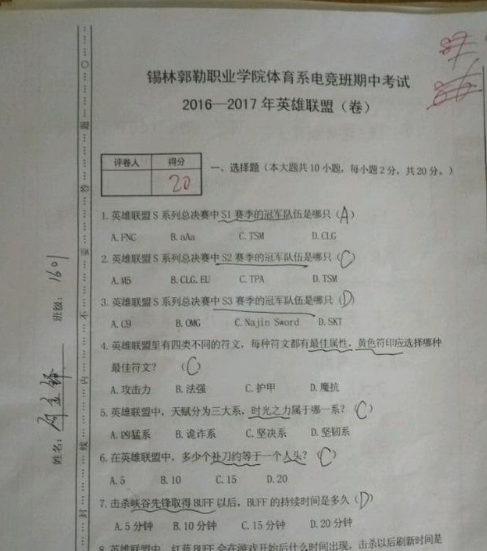 锡林郭勒职业学院体育系电竞班期中考试
2016—2017年英雄联盟（卷）
87
评卷人 得分
20
一、选择题（本大题共10小题，每小题2分，共20分。）
1.英雄联盟S系列总决赛中S1赛季的冠军队伍是哪只（A）
A.FNC B.aAa C.TSM D.CLG
2.英雄联盟S系列总决赛中S2赛季的冠军队伍是哪只（C）
A.M5 B.CLG.EU C.TPA D.TSM
3.英雄联盟S系列总决赛中S3赛季的冠军队伍是哪只（D）
A.C9 B.OMG C.Najin Sword D.SKT
4.英雄联盟里有四类不同的符文，每种符文都有最佳属性，黄色符印应选择哪种
最佳符文？ （C）
A.攻击力 B.法强 C.护甲 D.魔抗
5.英雄联盟中，天赋分为三大系，时光之力属于哪一系？（C）
A.凶猛系 B.诡诈系 C.坚决系 D.坚韧系
6.在英雄联盟中，多少个补刀约等于一个人头？（C）
A.5 B.10 C.15 D.20
7.击杀峡谷先锋取得BUFF以后，BUFF的持续时间是多久（D）
A.5分钟 B.10分钟 C.15分钟 D.20分钟
8.英雄联盟中，红蓝BUFF会在游戏开始后什么时间出现，击杀以后刷新时间是
班级：1601
姓名：
装
答
不
内
线
封